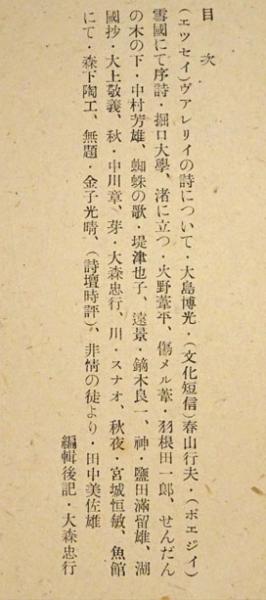 目次
(エツセイ)ヴアレリイの詩について・大島博光・(文化短信)春山行夫・(ポエジイ)
雪國にて序詩・堀口大學、渚に立つ・火野葦平、傷メル葦・羽根田一郎、せんだん
の木の下・中村芳雄、蜘蛛の歌・堤津也子、遠景・鏑木良一、神・鹽田滿留雄、湖
國抄・大上敬義、秋・中川章、芽・大森忠行、川・スナオ、秋夜・宮城恒敏、魚館
にて・森下陶工、無題・金子光晴、(詩壇時評)、非情の徒より・田中美佐雄
編輯後記・大森忠行